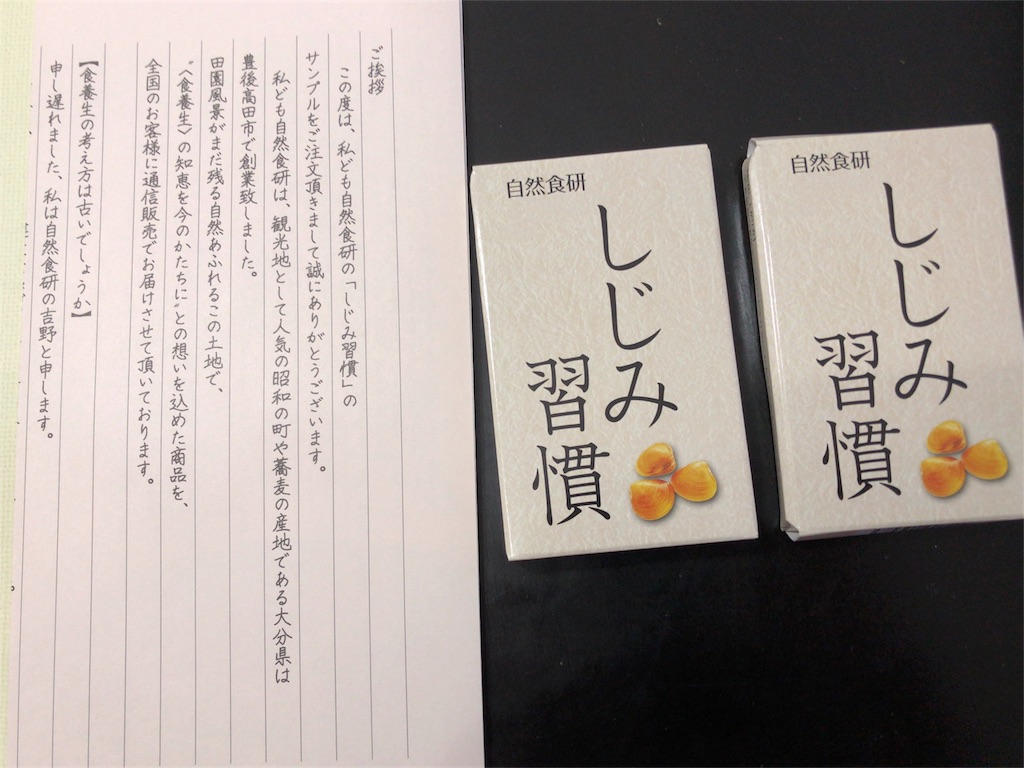 ご挨拶
この度は、私ども自然食研の「しじみ習慣」の
サンプルをご注文頂きまして誠にありがとうございます。
私ども自然食研は、観光地として人気の昭和の町や蕎麦の産地である大分県は
豊後高田市で創業致しました。
田園風景がまだ残る自然あふれるこの土地で、
“〈食養生〉の知恵を今のかたちに”との想いを込めた商品を、
全国のお客様に通信販売でお届けさせて頂いております。
【食養生の考え方は古いでしょうか】
申し遅れました、私は自然食研の吉野と申します。
自然食研
しじみ
習慣
自然食研
しじみ
習慣